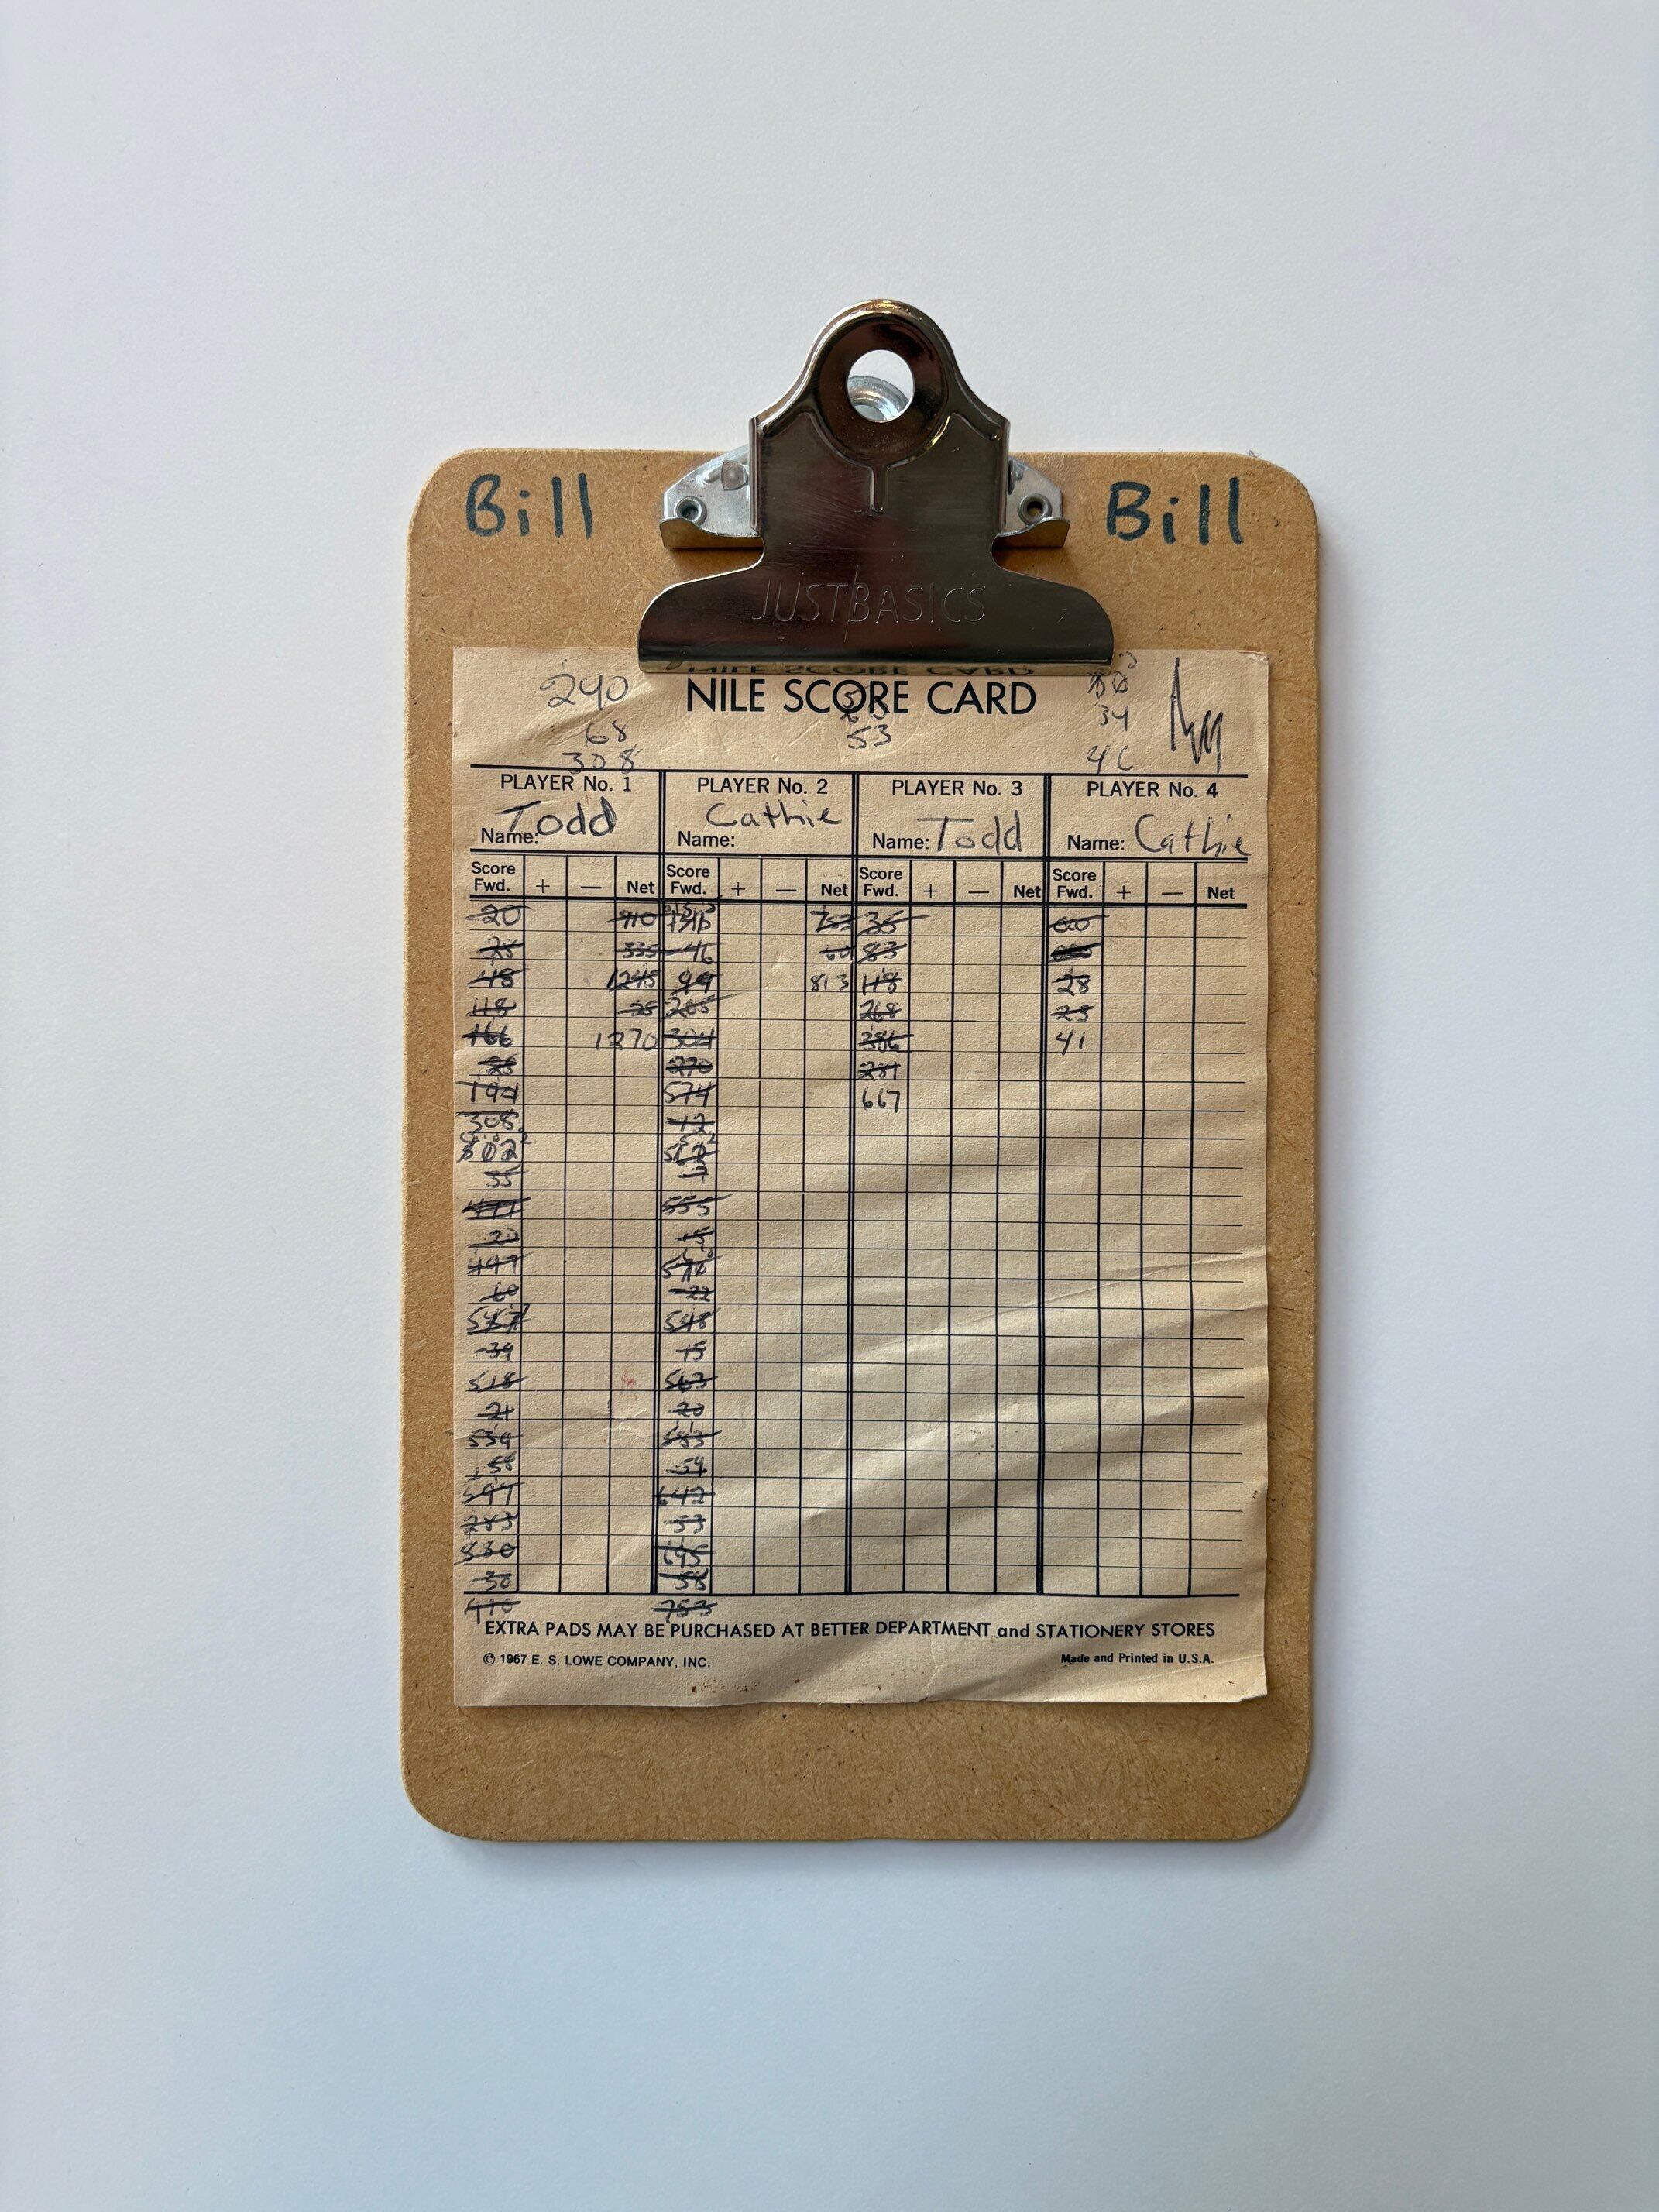 Bill Bill
JUSTBASICS
NILE SCORE CARD
240
68
308
53
34
PLAYER No. 1 PLAYER No. 2 PLAYER No. 3 PLAYER No. 4
Name: Todd Name: Cathie Name: Todd Name: Cathie
Score Fwd. + — Net Score Fwd. + — Net Score Fwd. + — Net Score Fwd. + — Net
20 910 753 35 600
28 335 46 60 83
48 1245 99 813 118 28
118 25 205 268 25
166 1270 304 386 41
28 270 281
194 574 667
308 12
502 562
55 7
555
20 15
497 570
60 22
557 548
39 15
518 563
21 20
539 583
58 59
597 642
283 53
880 695
30 58
910 753
EXTRA PADS MAY BE PURCHASED AT BETTER DEPARTMENT and STATIONERY STORES
© 1967 E. S. LOWE COMPANY, INC. Made and Printed in U.S.A.